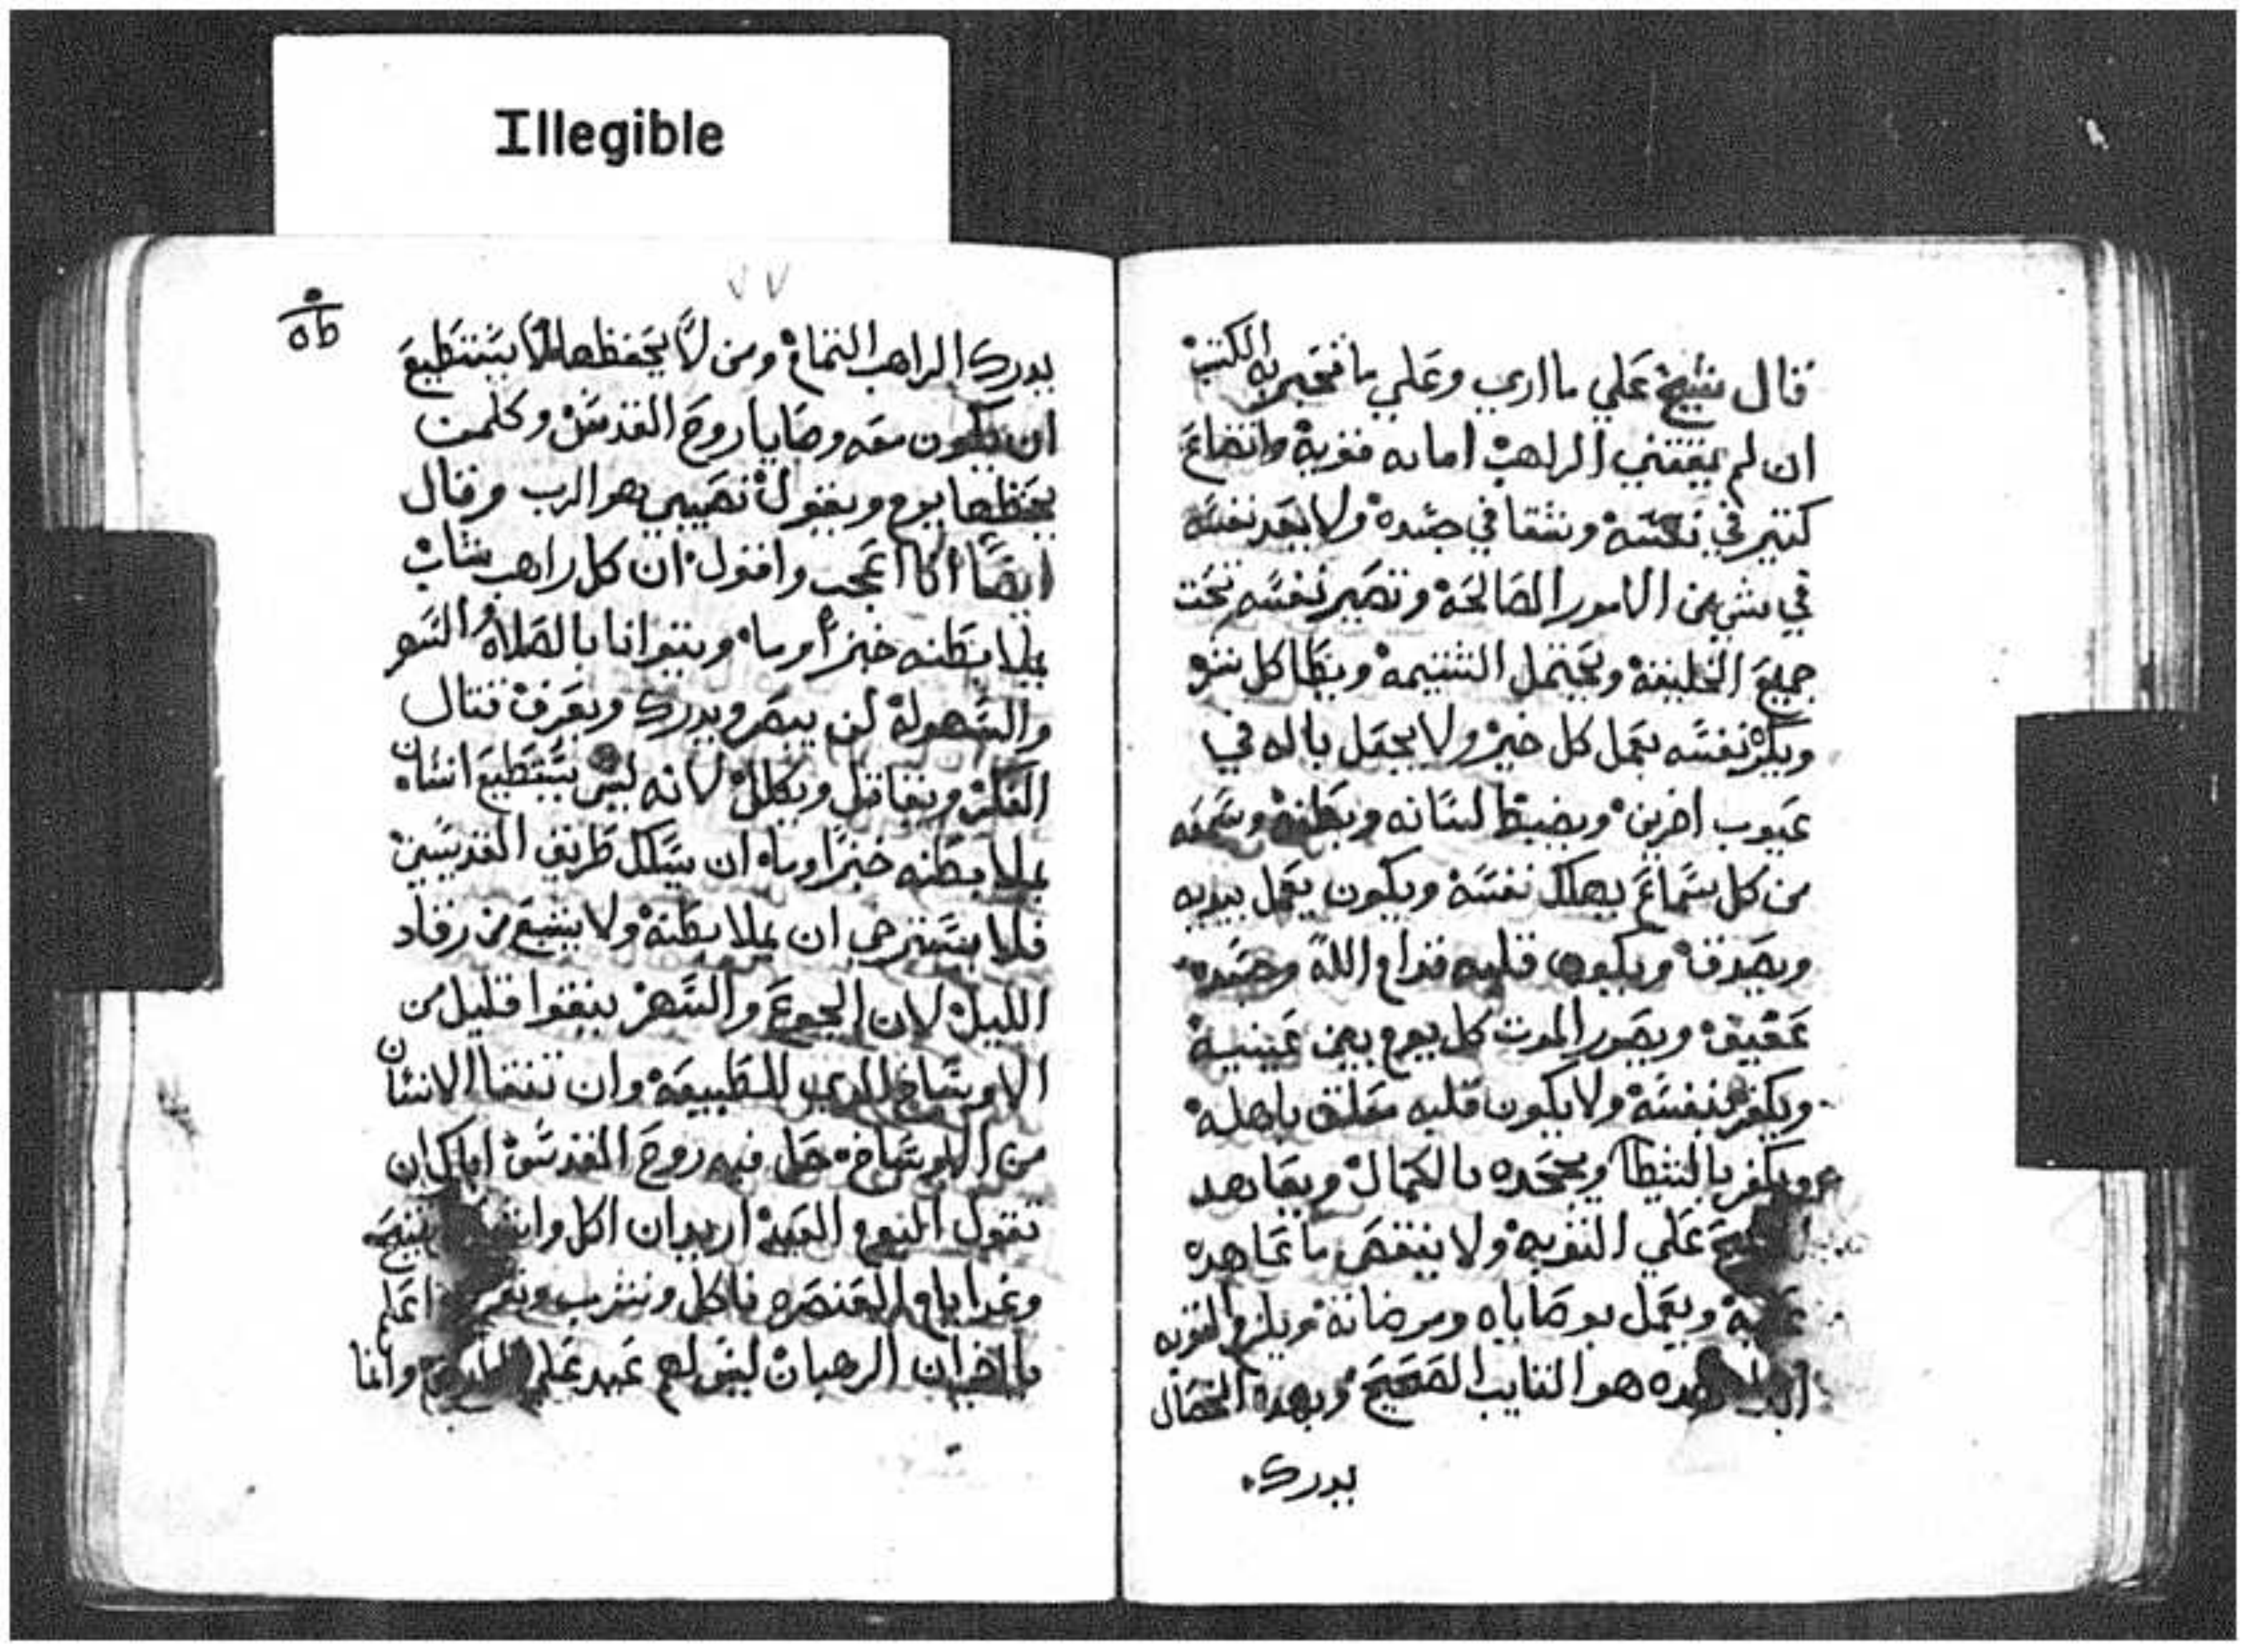 Illegible
قال شيخ علي ما اري وعلي ما تخبر به الكتب
ان لم يقتني الراهب امانه قويه واتضاع
كتير في نكسه وشقا في جسده ولا يعد نفسه
في شي من الامور الصالحه وتصير نفسه تحت
جميع الخليقه ويحتمل الشتيمه ويطا كل شر
ويكره نفسه بعمل كل خير ولا يجعل باله في
عيوب اخرين ويضبط لسانه وبطنه وسمعه
من كل سماع يهلك نفسه ويكون يعمل بيديه
ويصدق ويكون قلبه قدام الله وجسده
عفيف ويصور الموت كل يوم بين عينيه
ويكفر بنفسه ولا يكون قلبه معلق باهله
ويكفر بالشيطا ويجحده بالكمال ويعاهد
علي التوبه ولا ينقض ما عاهده
ويعمل بوصاياه ومرضاته ويلزم التوبه
هده هو التايب الصحيح وبهده الخصال
يدرك
٧٧
يدرك الراهب التمام ومن لا يحفظها لا يستطيع
ان يكون معه وصايا روح القدس وكلمن
يحفظها يوم ويقول نصيبي هو الرب وقال
ايضا انا اعجب واقول ان كل راهب شاب
يملا بطنه خبز أو ما ويتوانا بالصلاه السهر
والسهوله لن يبصر ويدرك ويعرف قتال
الفكر ويقاتل ويكلل لانه ليس يستطيع انسان
يملا بطنه خبزا وما ان يسلك طريق القديسين
فلا يستحي ان يملا بطنه ولا يشبع من رقاد
الليل لان الجوع والسهر ينقوا قليل من
الاوساخ للطبيعه وان تنقا الانسان
من الاوساخ حل فيه روح القدس اياك ان
تقول اليوم العيد اريد ان اكل
وغدا ايام العنصره ناكل ونشرب اعلم
ان الرهبان ليس لهم عيد علي وانما